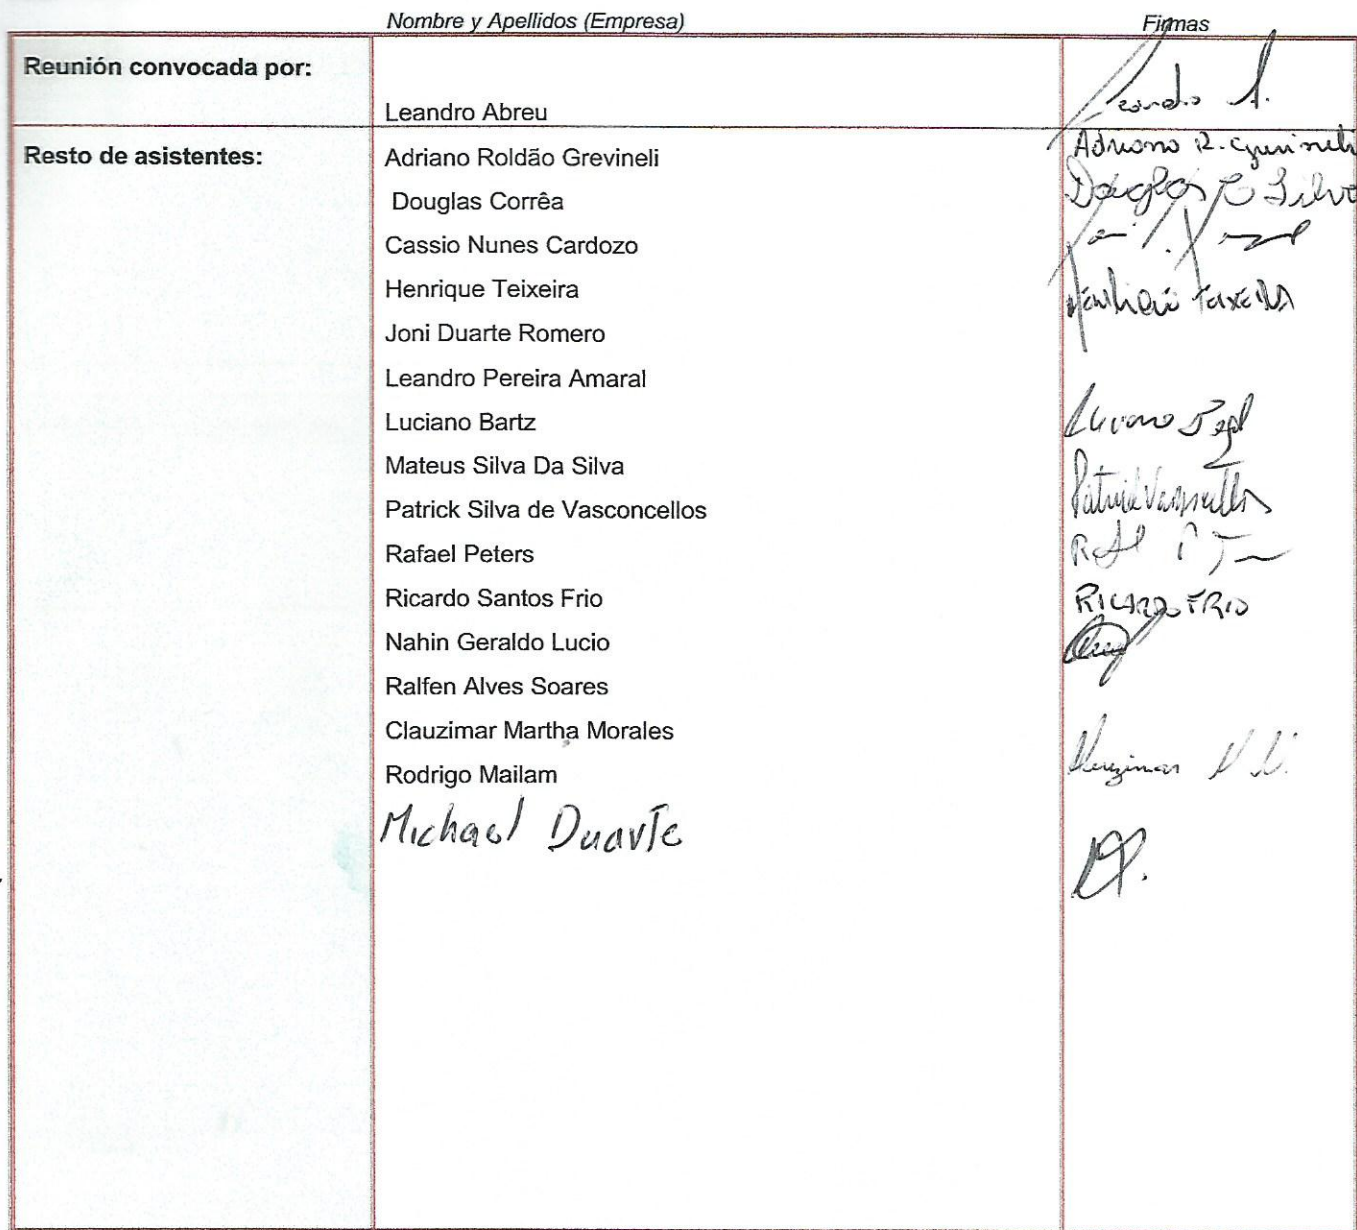 Nombre y Apellidos (Empresa) Firmas
Reunión convocada por:
Leandro Abreu Leandro A.
Resto de asistentes: Adriano Roldão Grevineli Adriano R.
Douglas Corrêa Douglas C Silva
Cassio Nunes Cardozo
Henrique Teixeira Teixeira
Joni Duarte Romero
Leandro Pereira Amaral
Luciano Bartz Luciano
Mateus Silva Da Silva
Patrick Silva de Vasconcellos Patrick Vasconcellos
Rafael Peters
Ricardo Santos Frio RICARDO FRIO
Nahin Geraldo Lucio
Ralfen Alves Soares
Clauzimar Martha Morales
Rodrigo Mailam
Michael Duarte